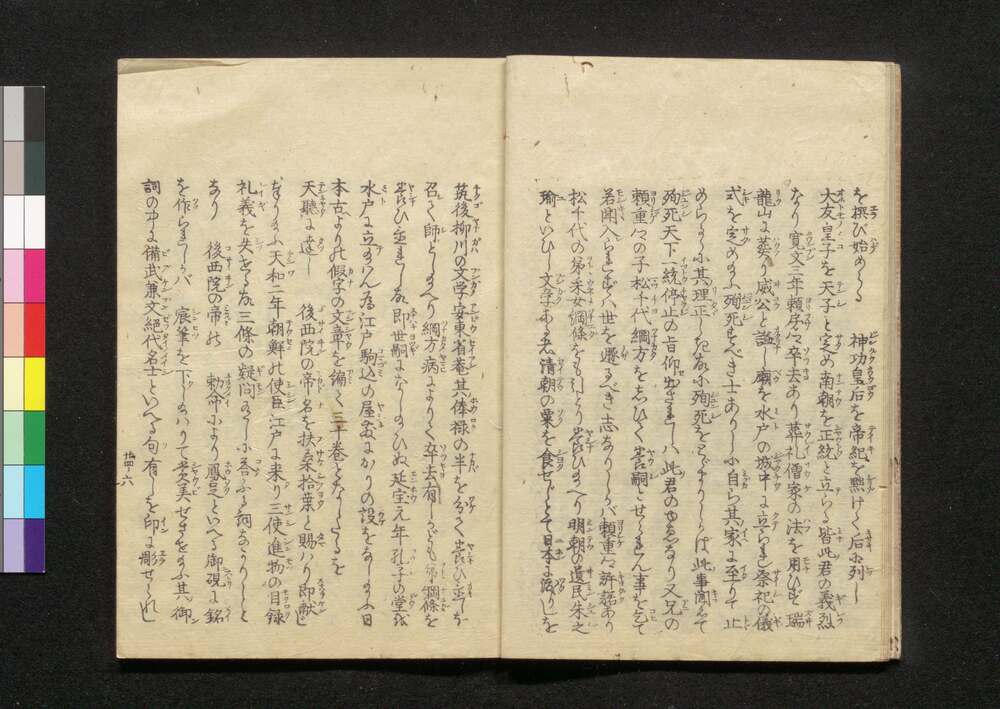 を撰び始める　神功皇后を帝紀を黜けく后に列し
大友皇子を天子と定め南朝を正統と立らる皆此君の義烈
なり寛文三年頼房卒去あり葬礼僧家の法を用ひず瑞
龍山に葬り威公と謚し廟を水戸の城中に立られ祭祀の儀
式を定めのふ殉死すべき士ありしに自ら其家に至りて止
めらるゝに其理正しき故に殉死をとゞまりしらば此事聞えて
殉死天下一統停止の旨仰出されしハ此君のゆゑなり又兄の
頼重の子松千代綱方をもらひく養嗣とせられん事を乞て
若聞入られずバ世を遯るべき志ありしらバ頼重許諾あり
松千代の弟采女綱條をも引とり養ひのへり明朝の遺民朱之
瑜といひし文学ある者清朝の粟を食せじとて日本に渡りしを
筑後柳川の文学安東省菴其俸禄の半を分ち養ひ置しを
召して師としのへり綱方病によりて卒去有しかども弟綱條を
養ひ置れし故即世嗣になしのひぬ延宝元年孔子の堂を
水戸に立のはん為江戸駒込の屋敷にかりの設をなしのふ日
本古よりの假字の文章を編て三十巻となしたるを
天聴に達し　後西院の帝名を扶桑拾葉と賜ハり即献じ
なりのふ天和二年朝鮮の使臣江戸に来り三使進物の目録
礼義を失せる故三條の疑問ありしに答ふる詞なかりしと
なり　後西院の帝の　勅命により鳳足といへる御硯の銘
を作られしかバ　宸筆を下しのハりて賞美せさせのふ其御
詞の中に備武兼文絶代名士といへる句有しを印に彫せられし
廿四ノ六